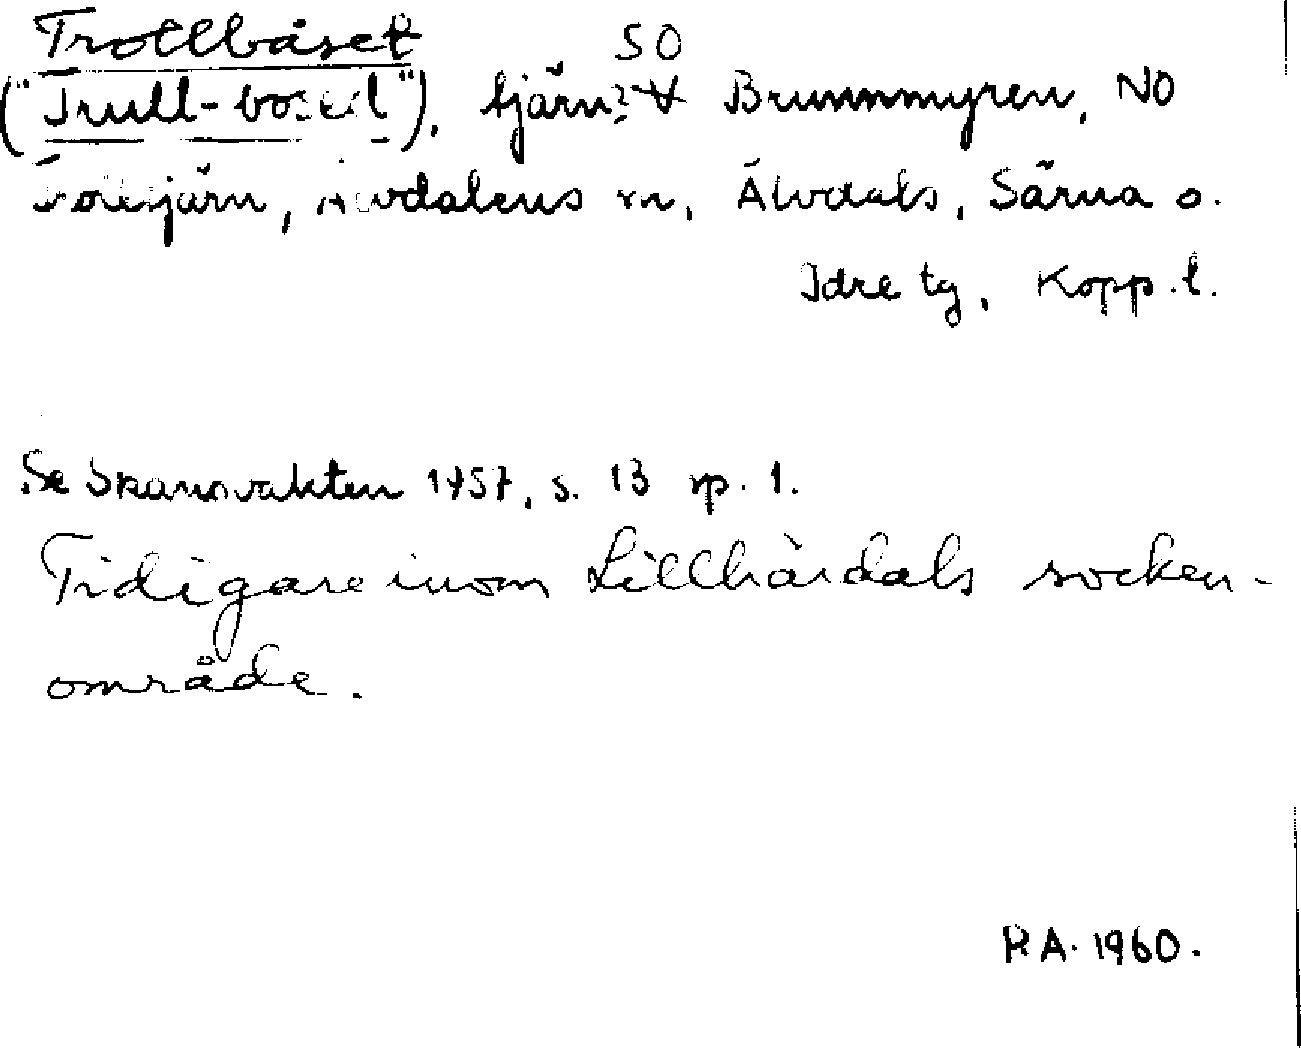 Trollbåset
("Trull-boséd"), tjärn? SO V Brunnmyren, NO
tjärn, Älvdalens sn, Älvdals, Särna o.
Idre tg, Kopp. l.
Se Skansvakten 1957, s. 13 sp. 1.
Tidigare inom Lillhärdals socken-
område.
RA. 1960.